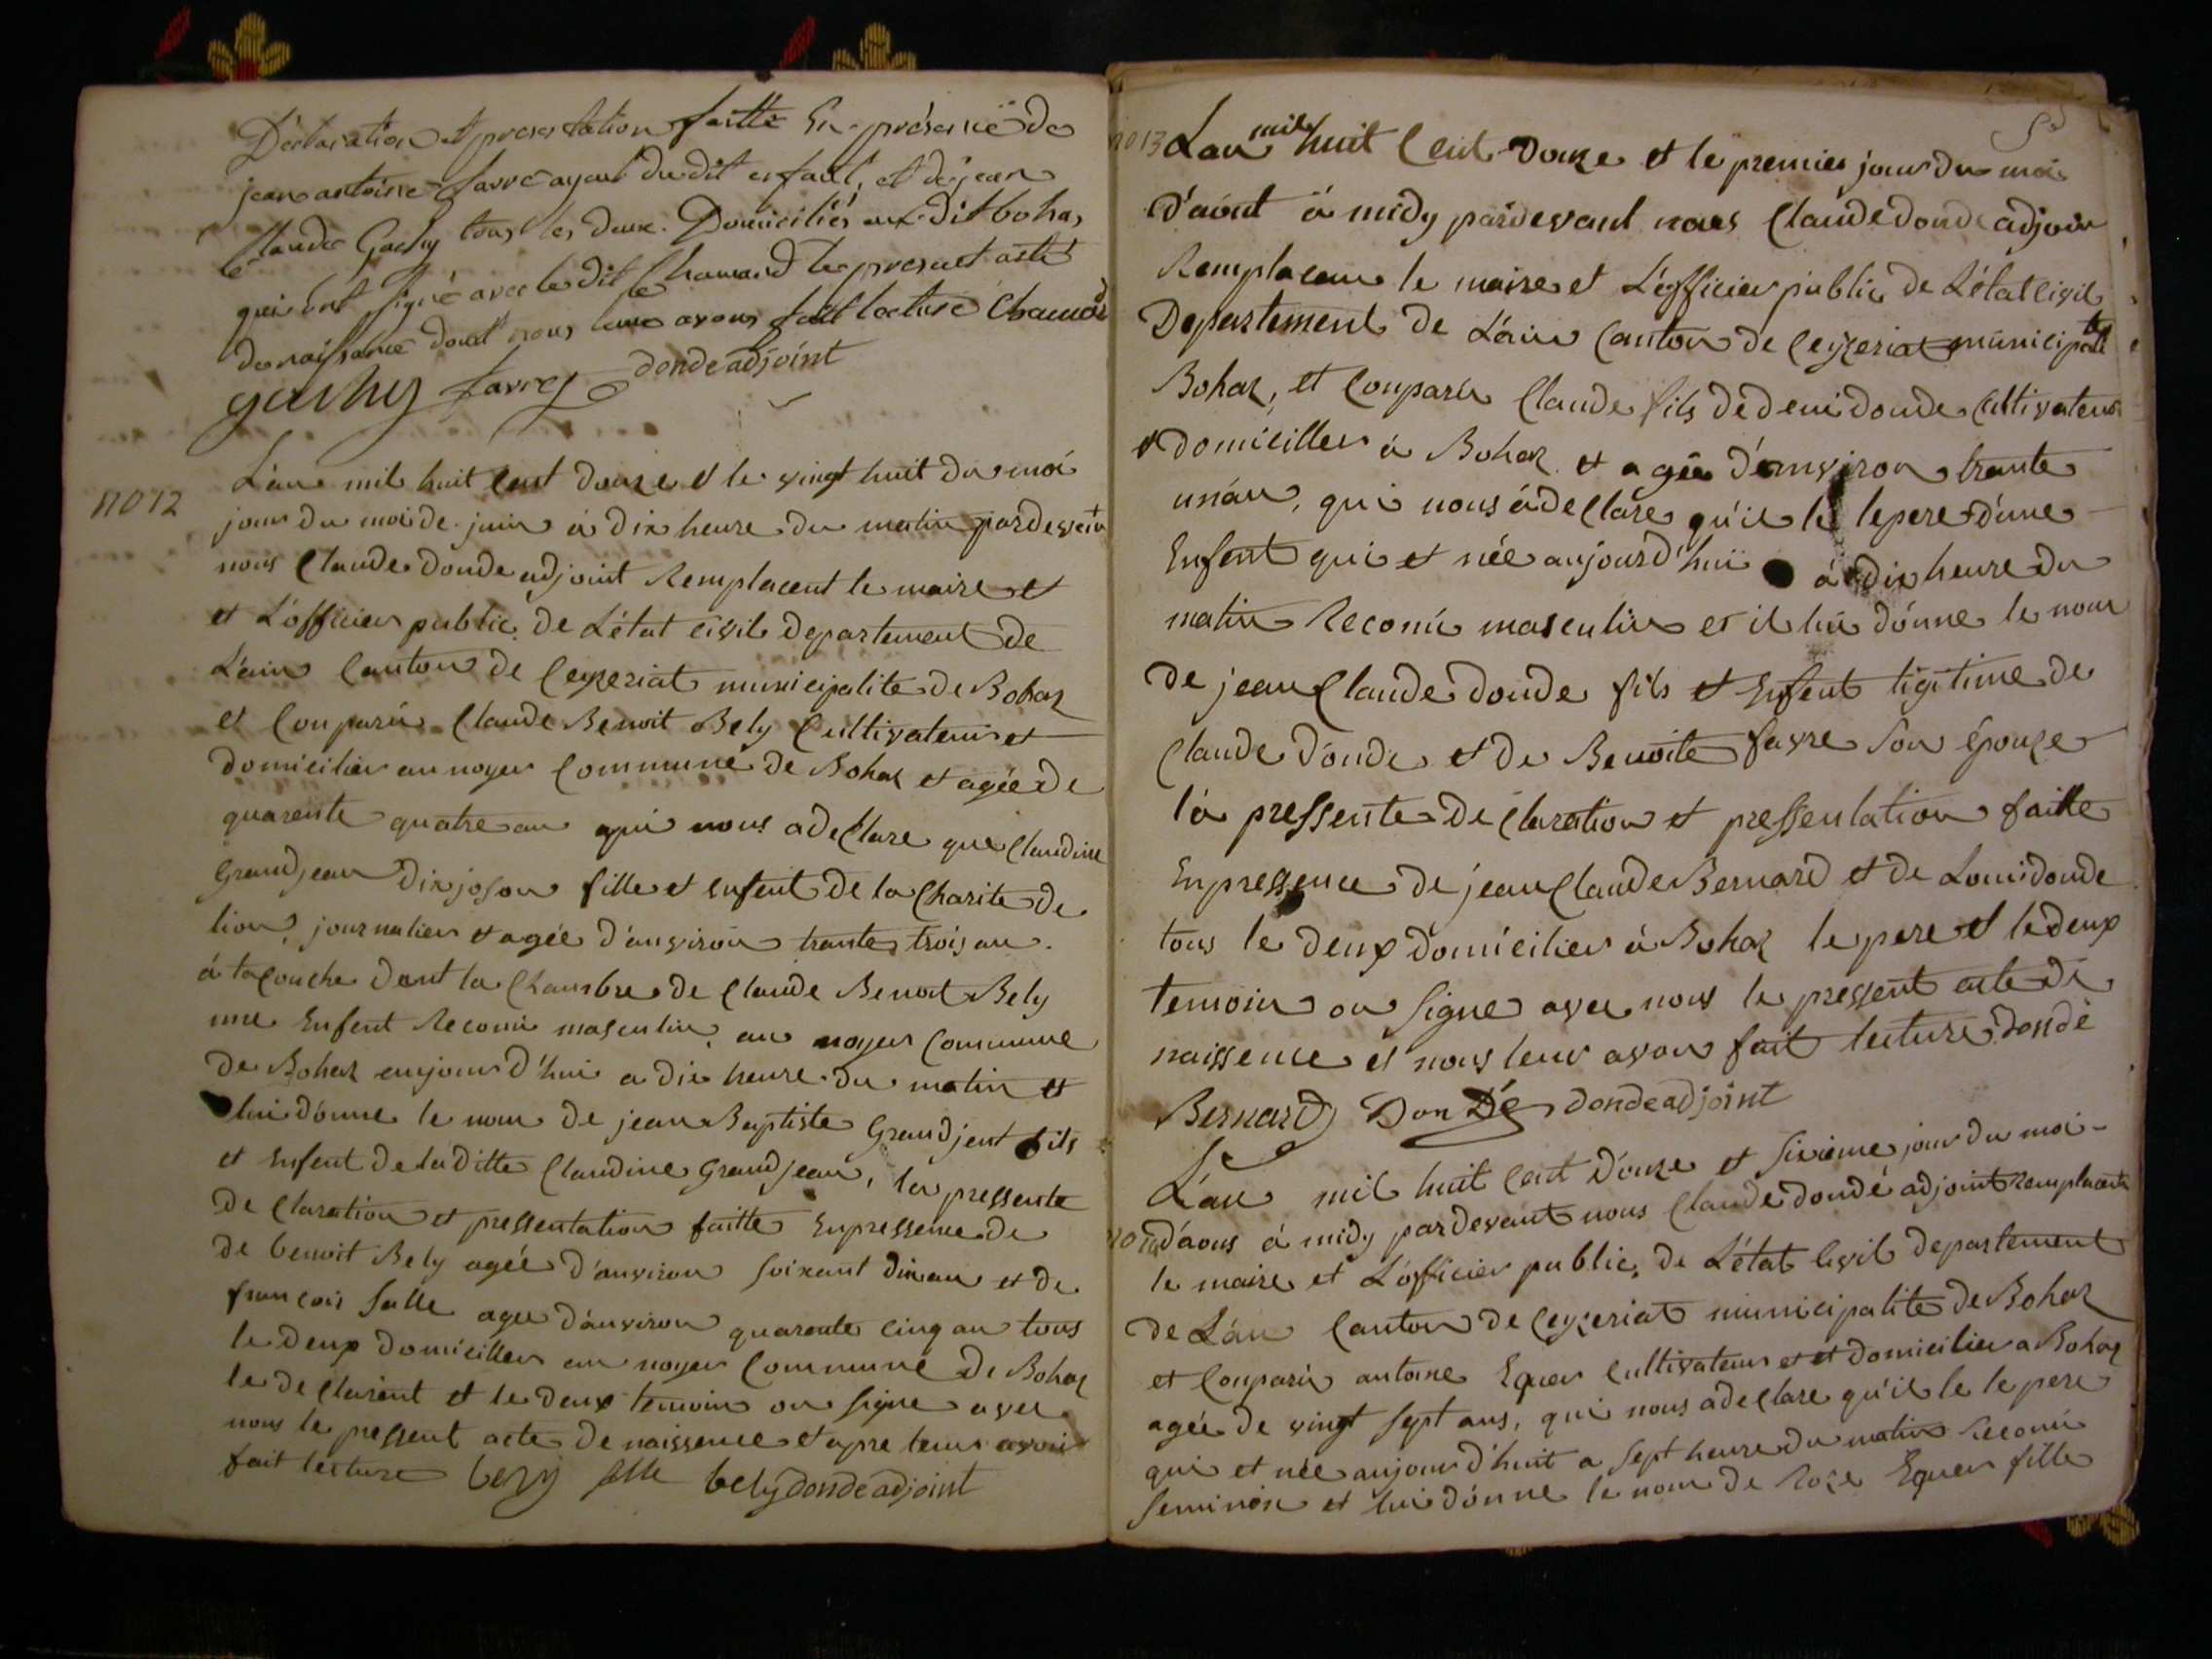 Déclaration et presentation faitte En présence de
jean antoine favre ayeul dudit enfant, et de jean
Claude Gachy tous les deux Domiciliés audit bohas
qui ont signé avec le dit Chamard le present acte
de naissance dont nous leur avons fait lecture Chamard
gachy favre donde adjoint
no 12
L'an mil huit cent douze et le vingt huit du moi
jour du moi de juin à dix heure du matin pardevant
nous Claude donde adjoint Remplacent le maire et
et L'officier public de L'état civil departement de
L'ain Canton de Ceyzeriat municipalite de Bohaz
et Conparu Claude Benoit Bely Cultivateur et
domicilier au noyer Commune de Bohaz et agée de
quarente quatre an qui nous a declare que Claudine
Grandjean dix joson fille et enfent de la Charite de
lion, journalier et agée d'anviron trante trois an.
à tacouche dant la Chambre de Claude Benoit Bely
une Enfent Reconu masculin au noyer Commune
de Bohaz aujourd'hui a dix heure du matin et
lui donne le nom de jean Baptiste Grandjent fils
et Enfent de la ditte Claudine Grandjean, la pressente
declaration et pressentation faitte Enpressence de
de benoit Bely agée d'anviron soixant dix an et de
francois salle agee d'anviron quarente cinq an tous
le deux domicillier au noyer Commune de Bohaz
le declarent et le deux temoin on signe avec
nous le pressent acte de naissence et apre leur avoir
fait lecture bely salle bely donde adjoint
no 13 L'an mil huit Cent Douze et le premier jour du moi
d'aout à midy pardevant nous Claude donde adjoin
Remplacen le maire et L'officier public de L'état civil
Departement de L'ain Canton de Ceyzeriat municipalte
Bohaz, et Conparu Claude fils de deni donde Cultivateur
et domicillier à Bohaz et agée d'anviron trante
un an, qui nous à declare qu'il le le pere d'une
Enfent qui et née aujourd'hui à dix heure du
matin Reconu masculin et il lui donne le nom
de jean Claude donde fils et Enfent ligitime de
Claude donde et de Benoite favre son épouze
là pressente declaration et pressentation faitte
Enpressence de jean Claude Bernard et de Loui donde
tous le deux domicilier à Bohaz le pere et le deux
temoin on signe avec nous le pressent acte de
naissence et nous leur avon fait lecture donde
Bernard Don Dé donde adjoint
L'an mil huit cent douze et sixieme jour du moi
no 14 d'aous à midy pardevant nous Claude donde adjoint remplacent
le maire et L'officier public de L'état civil departement
de L'ain Canton de Ceyzeriat municipalite de Bohaz
et Conparu antoine Equer Cultivateur et et domicilier a Bohaz
agée de vingt sept ans, qui nous a declare qu'il le le pere
qui et née aujourd'huit a sept heure du matin reconu
feminin et lui donne le nom de Roze Equer fille